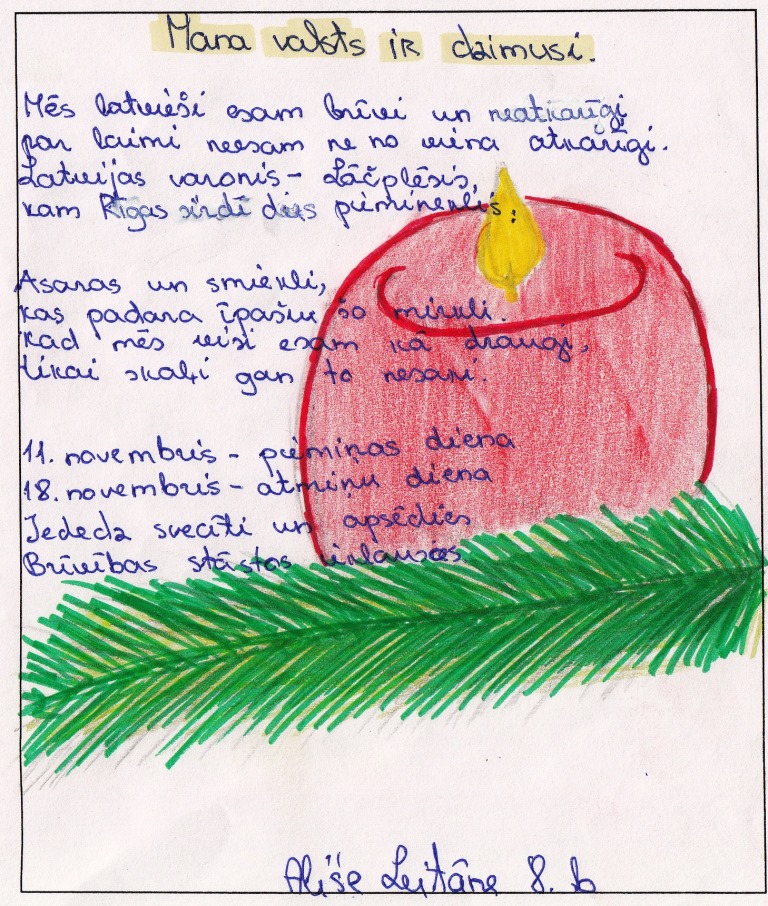 Mana valsts ir dzimusi.
Mēs latvieši esam brīvi un neatkarīgi
par laimi neesam ne no viena atkarīgi.
Latvijas varonis - Lāčplēsis,
kam Rīgas sirdī dus piemineklis.
Asaras un smiekli,
kas padara īpašu šo mirkli.
kad mēs visi esam kā draugi,
tikai skaļi gan to nesani.
11. novembris - piemiņas diena
18. novembris - atmiņu diena
Iededz svecīti un apsēdies
Brīvības stāstos ieklausies.
Alise Leitāne 8. b